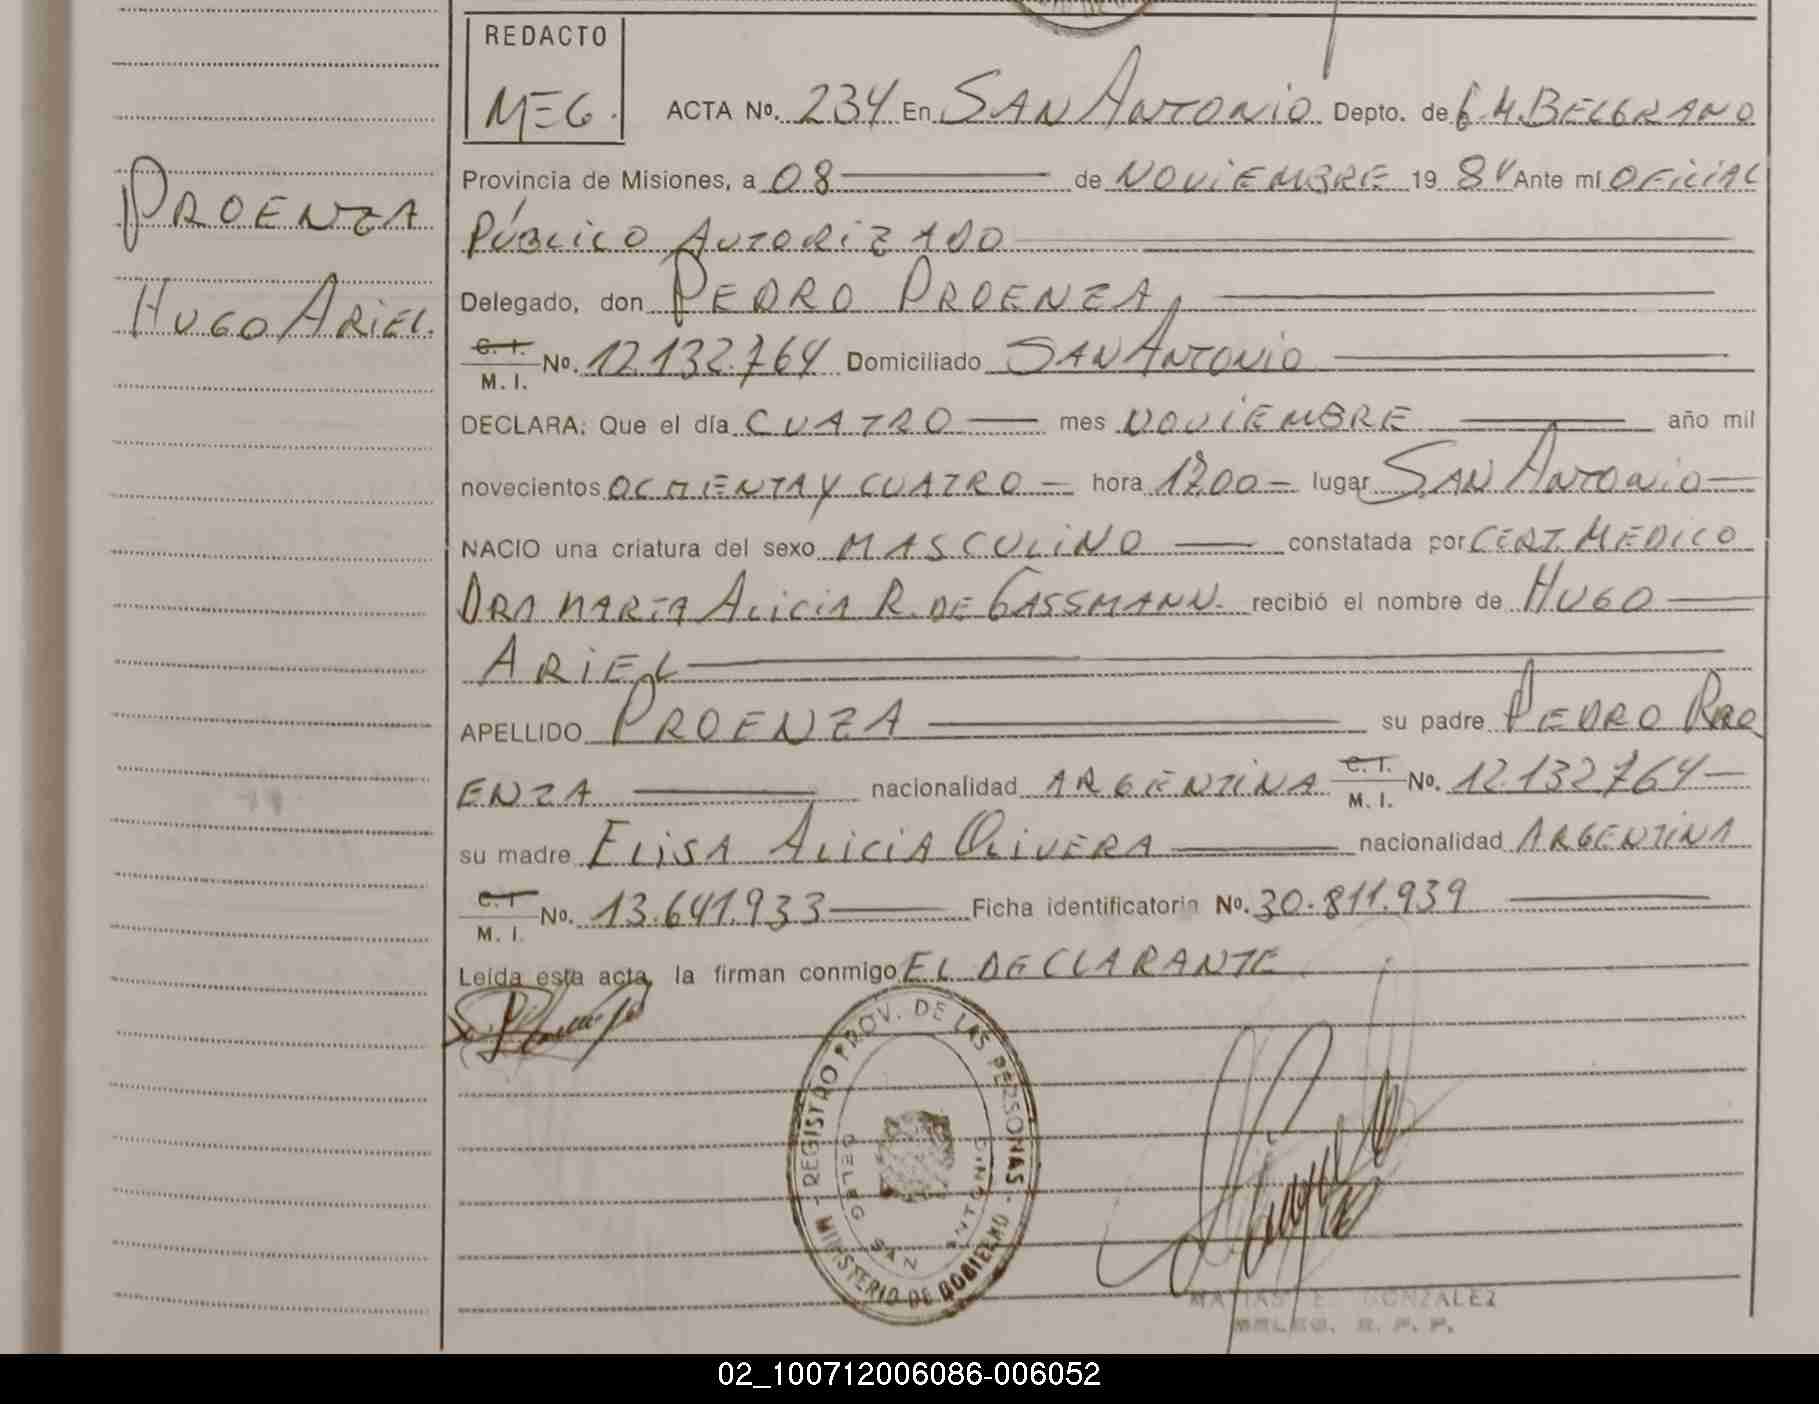 REDACTO
MEG.
ACTA No. 234 En SAN ANTONIO Depto. de G. M. BELGRANO
Provincia de Misiones, a 08 de NOVIEMBRE 19 84 Ante mí OFICIAL
PÚBLICO AUTORIZADO
Delegado, don PEDRO PROENZA
C. I.
M. I. No. 12.132.764 Domiciliado SAN ANTONIO
DECLARA: Que el día CUATRO mes NOVIEMBRE año mil
novecientos OCHENTA Y CUATRO hora lugar SAN ANTONIO
NACIO una criatura del sexo MASCULINO constatada por CERT. MEDICO
DRA MARIA ALICIA R. DE GASSMANN. recibió el nombre de HUGO
ARIEL
APELLIDO PROENZA su padre PEDRO PRO
ENZA nacionalidad ARGENTINA C. I. M. I. No. 12.132764
su madre ELISA ALICIA OLIVERA nacionalidad ARGENTINA
C. I
M. I. No. 13.641.933 Ficha identificatoria No. 30.811.939
Leida esta acta, la firman conmigo EL DECLARANTE
PROENZA
HUGO ARIEL.
REGISTRO PROV. DE LAS PERSONAS
MINISTERIO DE GOBIERNO
DELEG SAN ANTONIO
MATIAS E. GONZALEZ
DELEG. R. P. P.
02_100712006086-006052